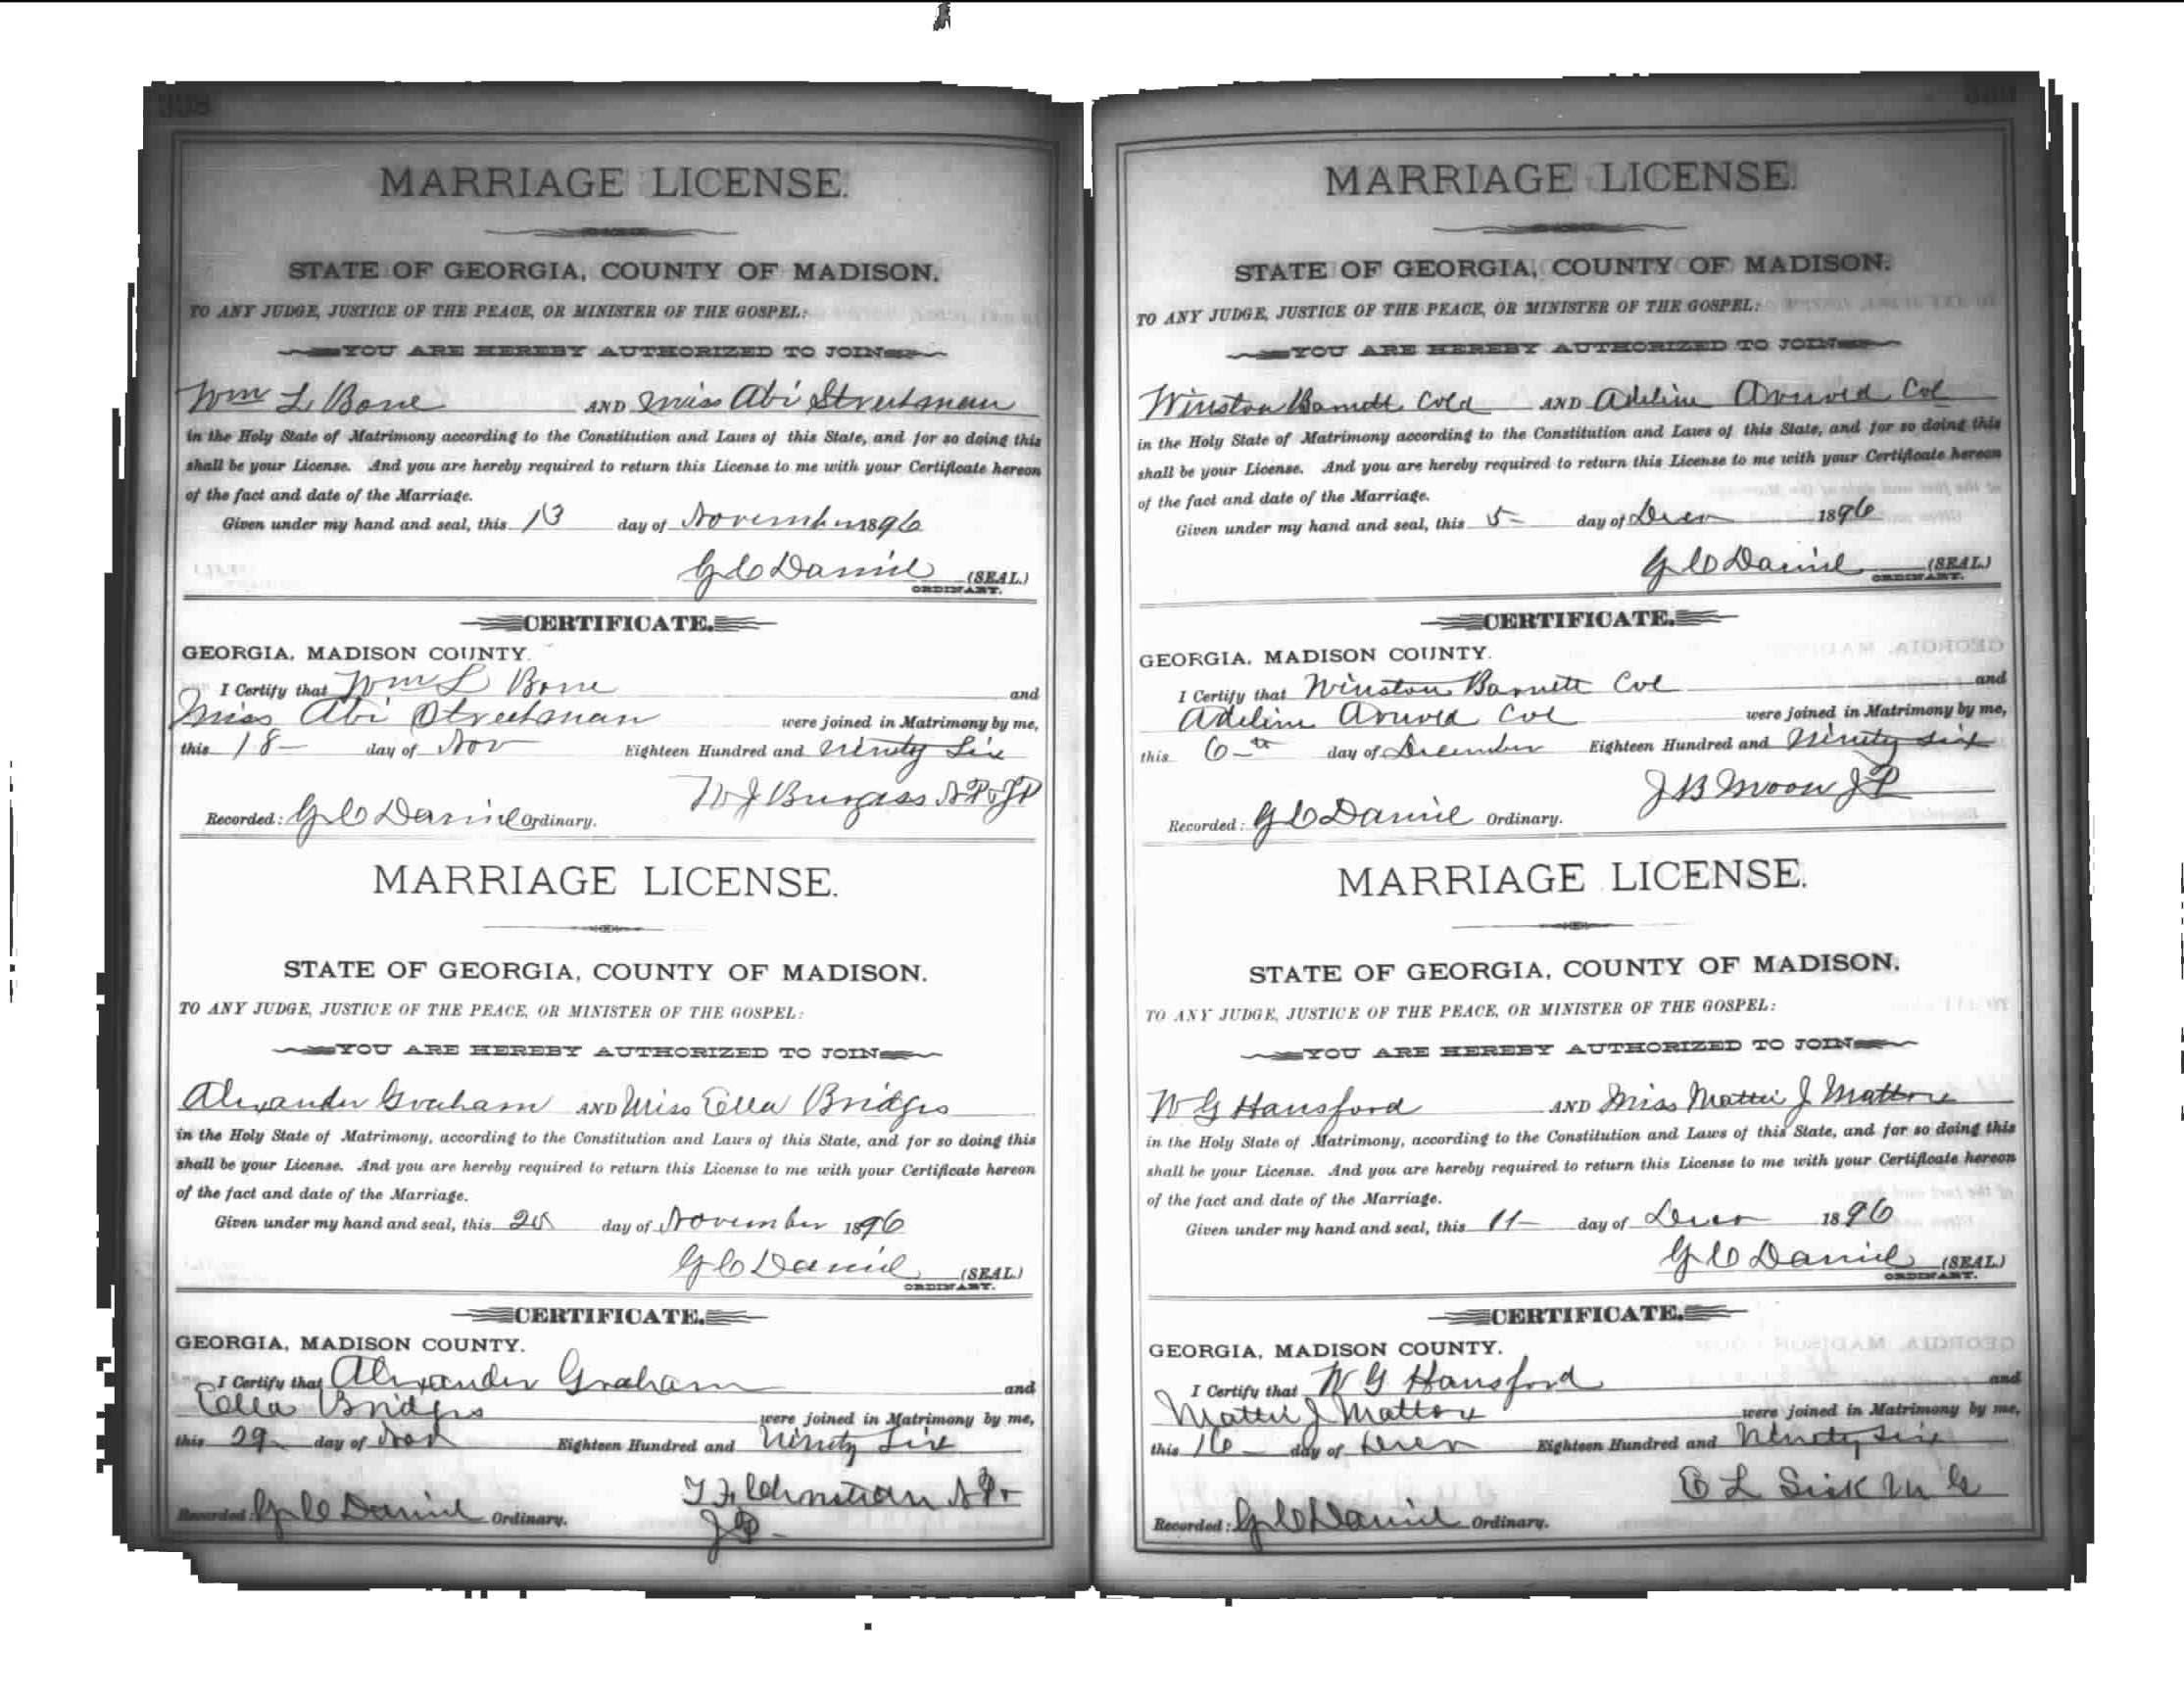 MARRIAGE LICENSE.
STATE OF GEORGIA, COUNTY OF MADISON.
TO ANY JUDGE, JUSTICE OF THE PEACE, OR MINISTER OF THE GOSPEL:
YOU ARE HEREBY AUTHORIZED TO JOIN
Wm L Bone AND Miss Abi Streetman
in the Holy State of Matrimony according to the Constitution and Laws of this State, and for so doing this
shall be your License. And you are hereby required to return this License to me with your Certificate hereon
of the fact and date of the Marriage.
Given under my hand and seal, this 13 day of November 1896
G C Daniel (SEAL.)
ORDINARY.
CERTIFICATE.
GEORGIA, MADISON COUNTY.
I Certify that Wm L Bone and
Miss Abi Streetman were joined in Matrimony by me,
this 18 - day of Nov Eighteen Hundred and Ninety Six
W J Burgess N.P. & J P
Recorded: G C Daniel Ordinary.
MARRIAGE LICENSE.
STATE OF GEORGIA, COUNTY OF MADISON.
TO ANY JUDGE, JUSTICE OF THE PEACE, OR MINISTER OF THE GOSPEL:
YOU ARE HEREBY AUTHORIZED TO JOIN
Alexander Graham AND Miss Ella Bridges
in the Holy State of Matrimony, according to the Constitution and Laws of this State, and for so doing this
shall be your License. And you are hereby required to return this License to me with your Certificate hereon
of the fact and date of the Marriage.
Given under my hand and seal, this day of November 1896
G C Daniel (SEAL.)
ORDINARY.
CERTIFICATE.
GEORGIA, MADISON COUNTY.
I Certify that Alexander Graham and
Ella Bridges were joined in Matrimony by me,
this 29 day of Nov Eighteen Hundred and Ninety Six
J P
Recorded: G C Daniel Ordinary.
MARRIAGE LICENSE.
STATE OF GEORGIA, COUNTY OF MADISON.
TO ANY JUDGE, JUSTICE OF THE PEACE, OR MINISTER OF THE GOSPEL:
YOU ARE HEREBY AUTHORIZED TO JOIN
Winston Barnett Cold AND Adeline Arnold Col
in the Holy State of Matrimony according to the Constitution and Laws of this State, and for so doing this
shall be your License. And you are hereby required to return this License to me with your Certificate hereon
of the fact and date of the Marriage.
Given under my hand and seal, this 5 - day of Decr 1896
G C Daniel (SEAL.)
ORDINARY.
CERTIFICATE.
GEORGIA, MADISON COUNTY.
I Certify that Winston Barnett Col and
Adeline Arnold Col were joined in Matrimony by me,
this 6 - th day of December Eighteen Hundred and Ninety six
J B Moon J P
Recorded: G C Daniel Ordinary.
MARRIAGE LICENSE.
STATE OF GEORGIA, COUNTY OF MADISON.
TO ANY JUDGE, JUSTICE OF THE PEACE, OR MINISTER OF THE GOSPEL:
YOU ARE HEREBY AUTHORIZED TO JOIN
W G Hansford AND Miss Mattie J Mattox
in the Holy State of Matrimony, according to the Constitution and Laws of this State, and for so doing this
shall be your License. And you are hereby required to return this License to me with your Certificate hereon
of the fact and date of the Marriage.
Given under my hand and seal, this 11 - day of Decr 1896
G C Daniel (SEAL.)
ORDINARY.
CERTIFICATE.
GEORGIA, MADISON COUNTY.
I Certify that W G Hansford and
Mattie J Mattox were joined in Matrimony by me,
this 16 - day of Decr Eighteen Hundred and Ninety six
E L Sisk M G
Recorded: G C Daniel Ordinary.